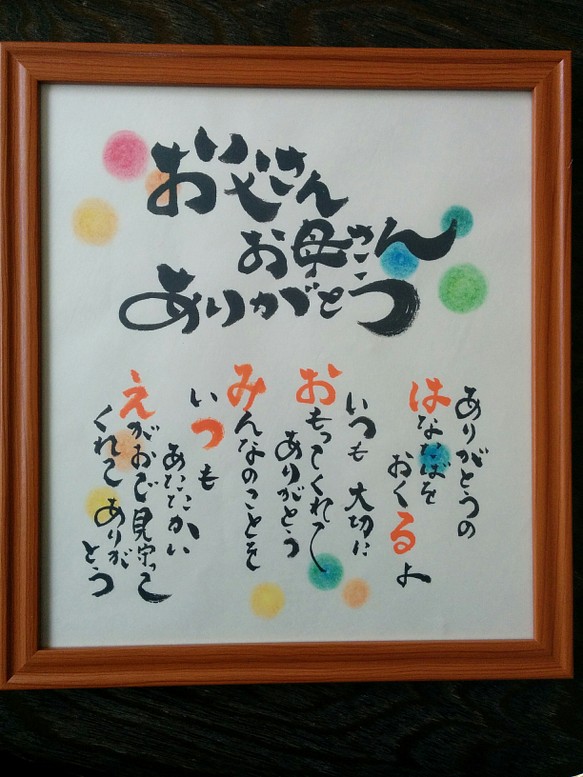 お父さん
お母さん
ありがとう
ありがとうの
はなたばを
おくるよ
いつも 大切に
おもってくれて
ありがとう
みんなのことを
いつも
あたたかい
えがおで見守って
くれて ありがとう